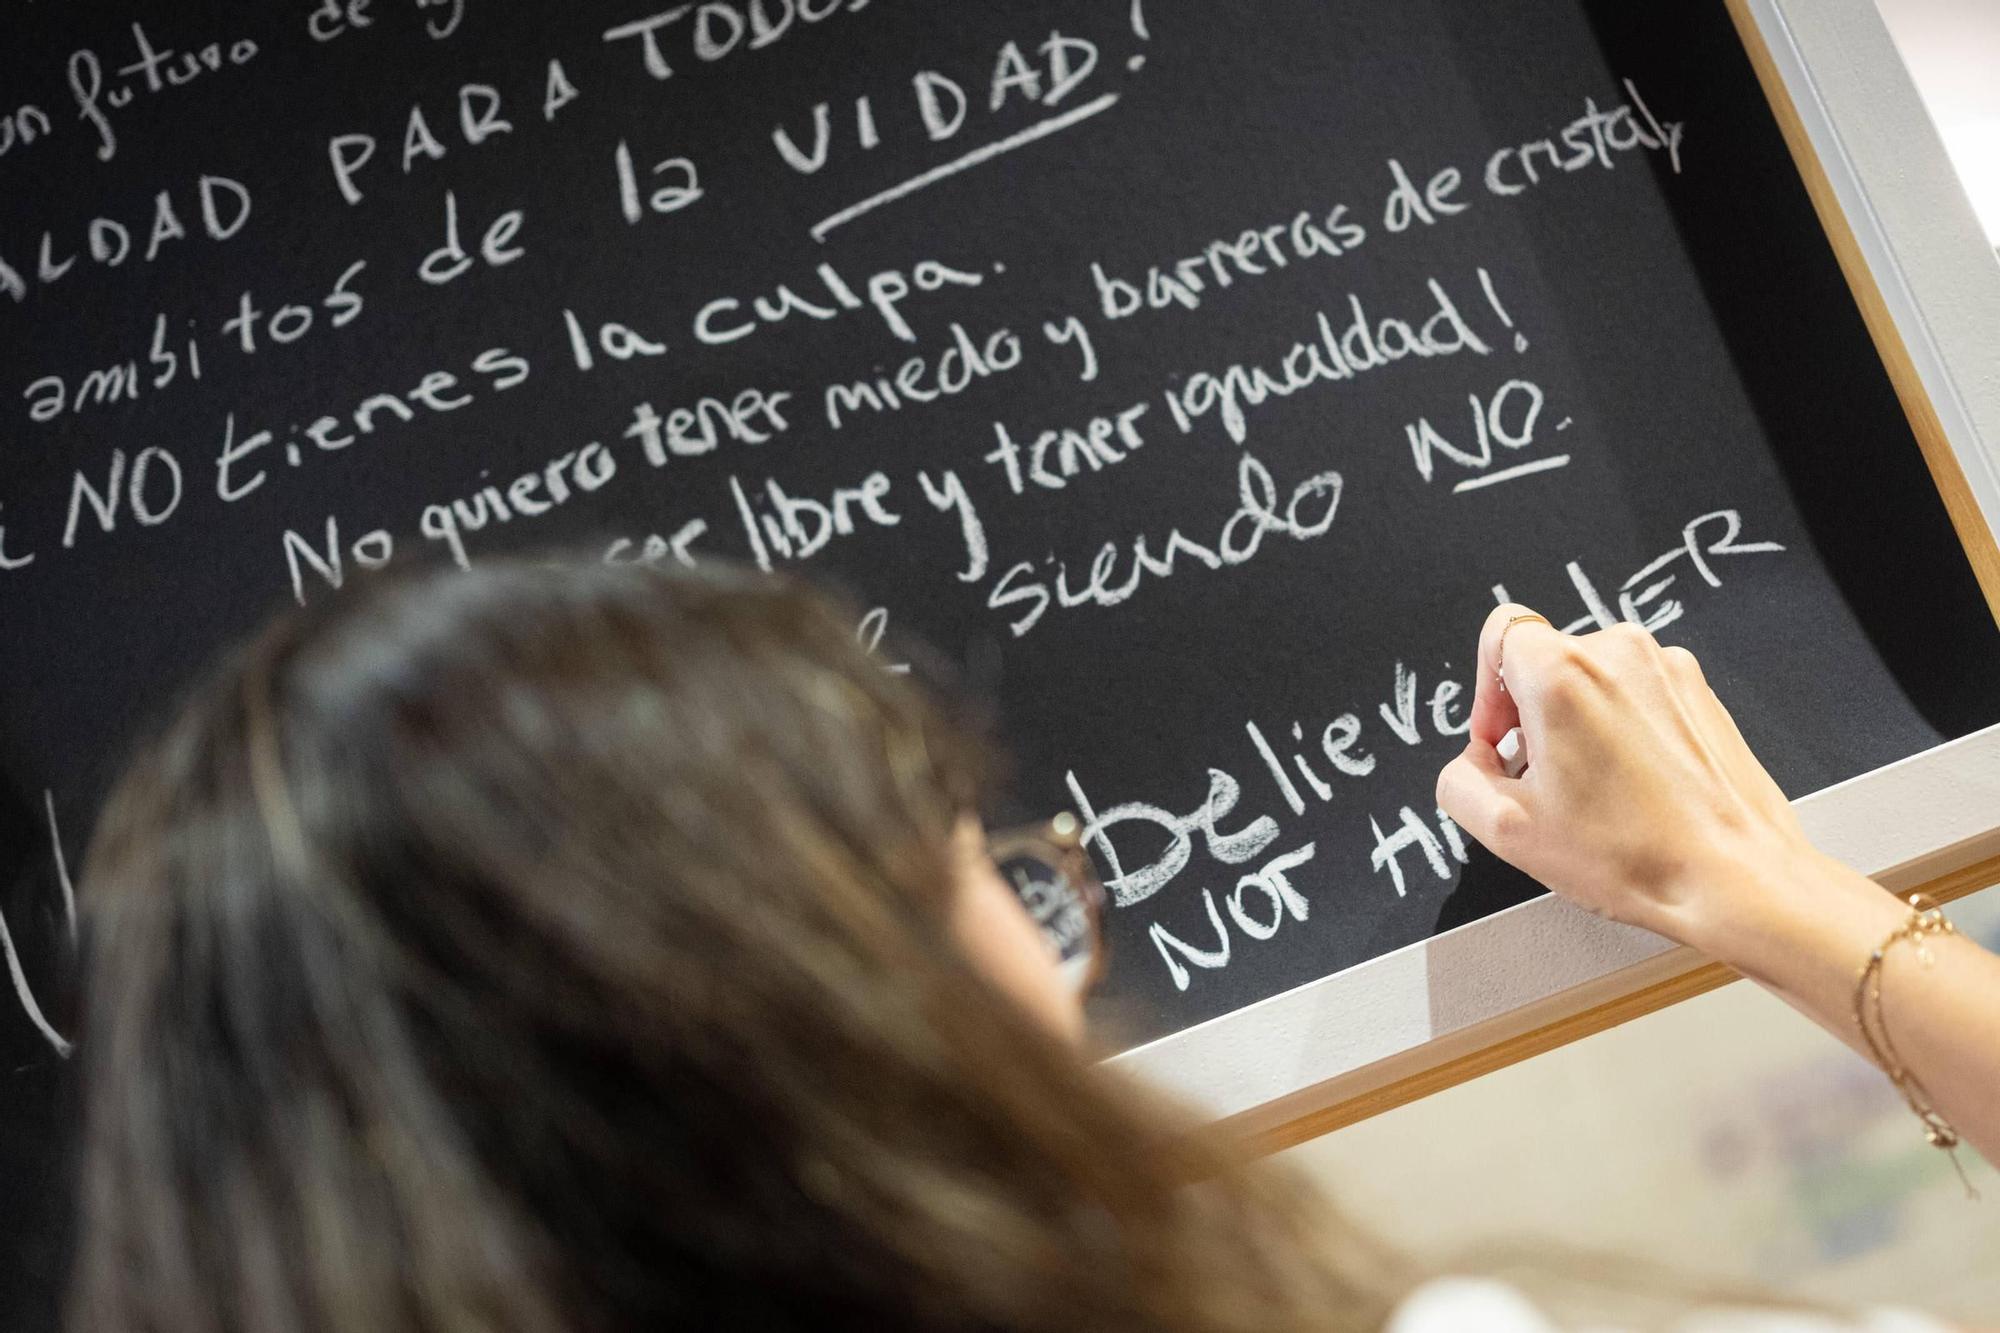 futuro de
PARA TODOS
ambitos de la VIDAD!
NO tienes la culpa.
No quiero tener miedo y barreras de cristal,
ser libre y tener igualdad!
siendo NO.
believe HER
NOT